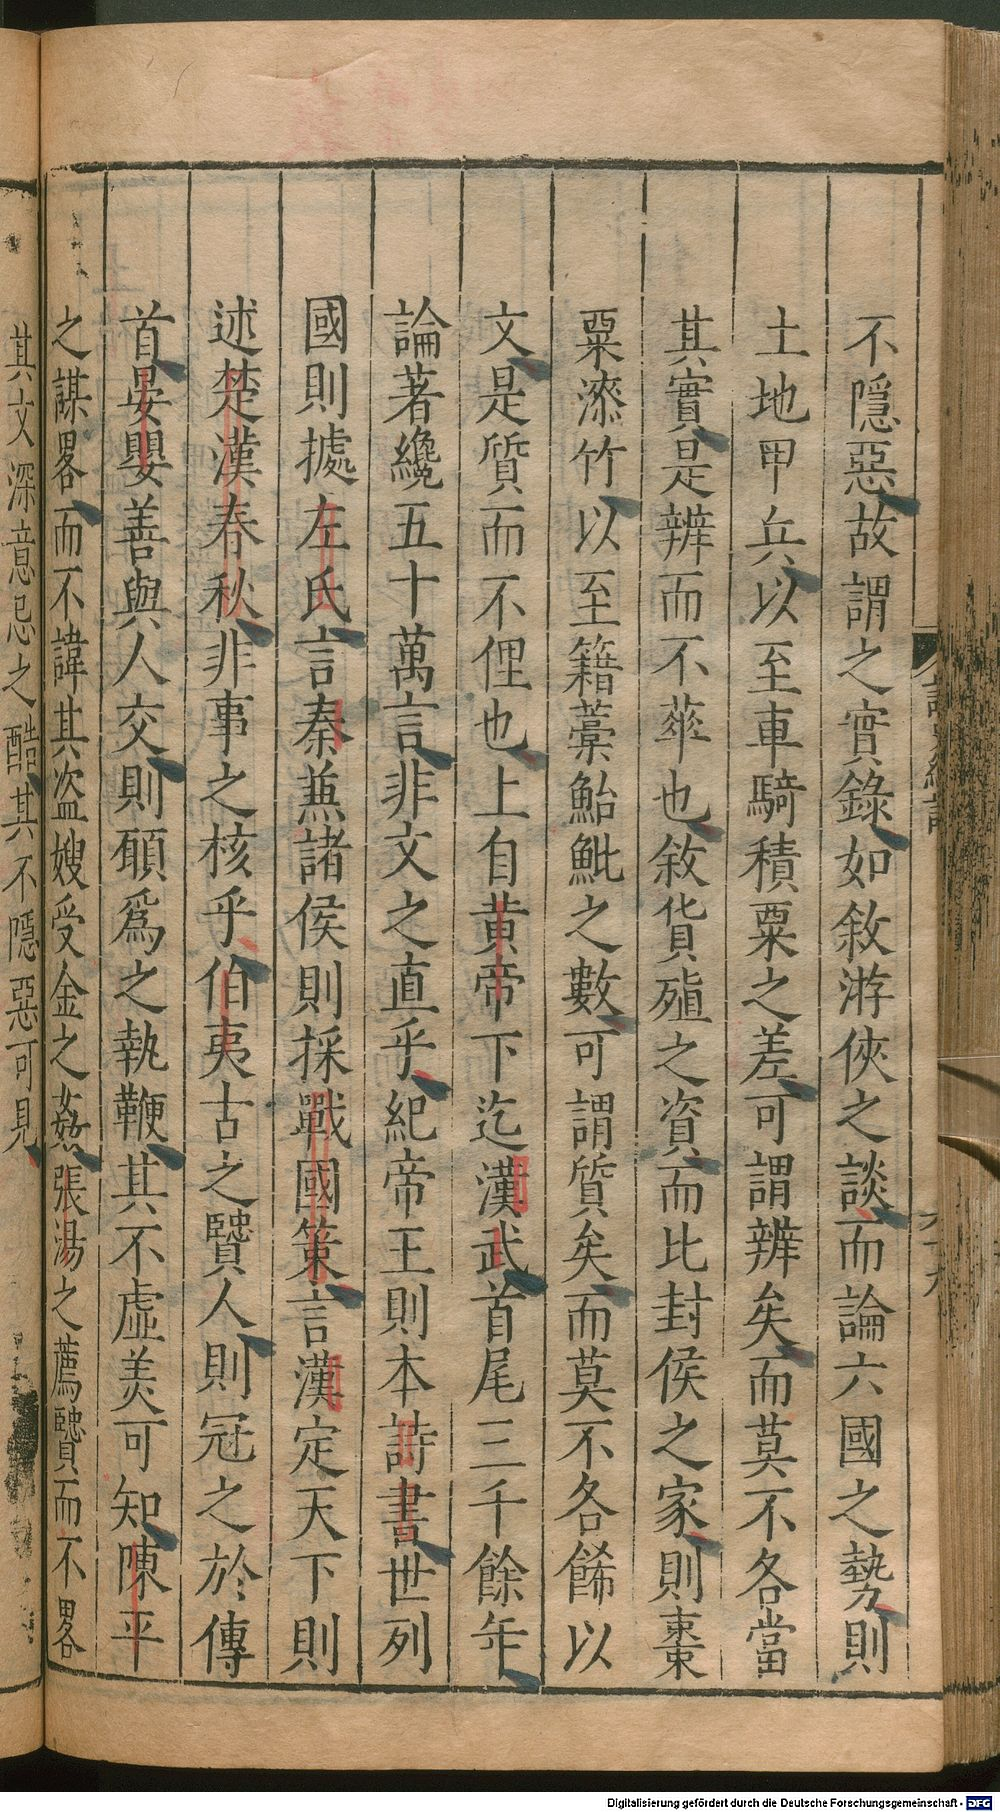 不隱惡故謂之實錄如敘游俠之談而論六國之勢則
土地甲兵以至車騎積粟之差可謂辨矣而莫不各當
其實是辨而不華也敘貨殖之資而比封侯之家則棗
粟漆竹以至籍藁鮐鮆之數可謂質矣而莫不各飾以
文是質而不俚也上自黃帝下迄漢武首尾三千餘年
論著纔五十萬言非文之直乎紀帝王則本詩書世列
國則據左氏言秦兼諸侯則採戰國策言漢定天下則
述楚漢春秋非事之核乎伯夷古之賢人則冠之於傳
首晏嬰善與人交則願為之執鞭其不虛美可知陳平
之謀畧而不諱其盜嫂受金之姦張湯之薦賢而不畧
其文深意忌之酷其不隱惡可見
Digitalisierung gefördert durch die Deutsche Forschungsgemeinschaft - DFG